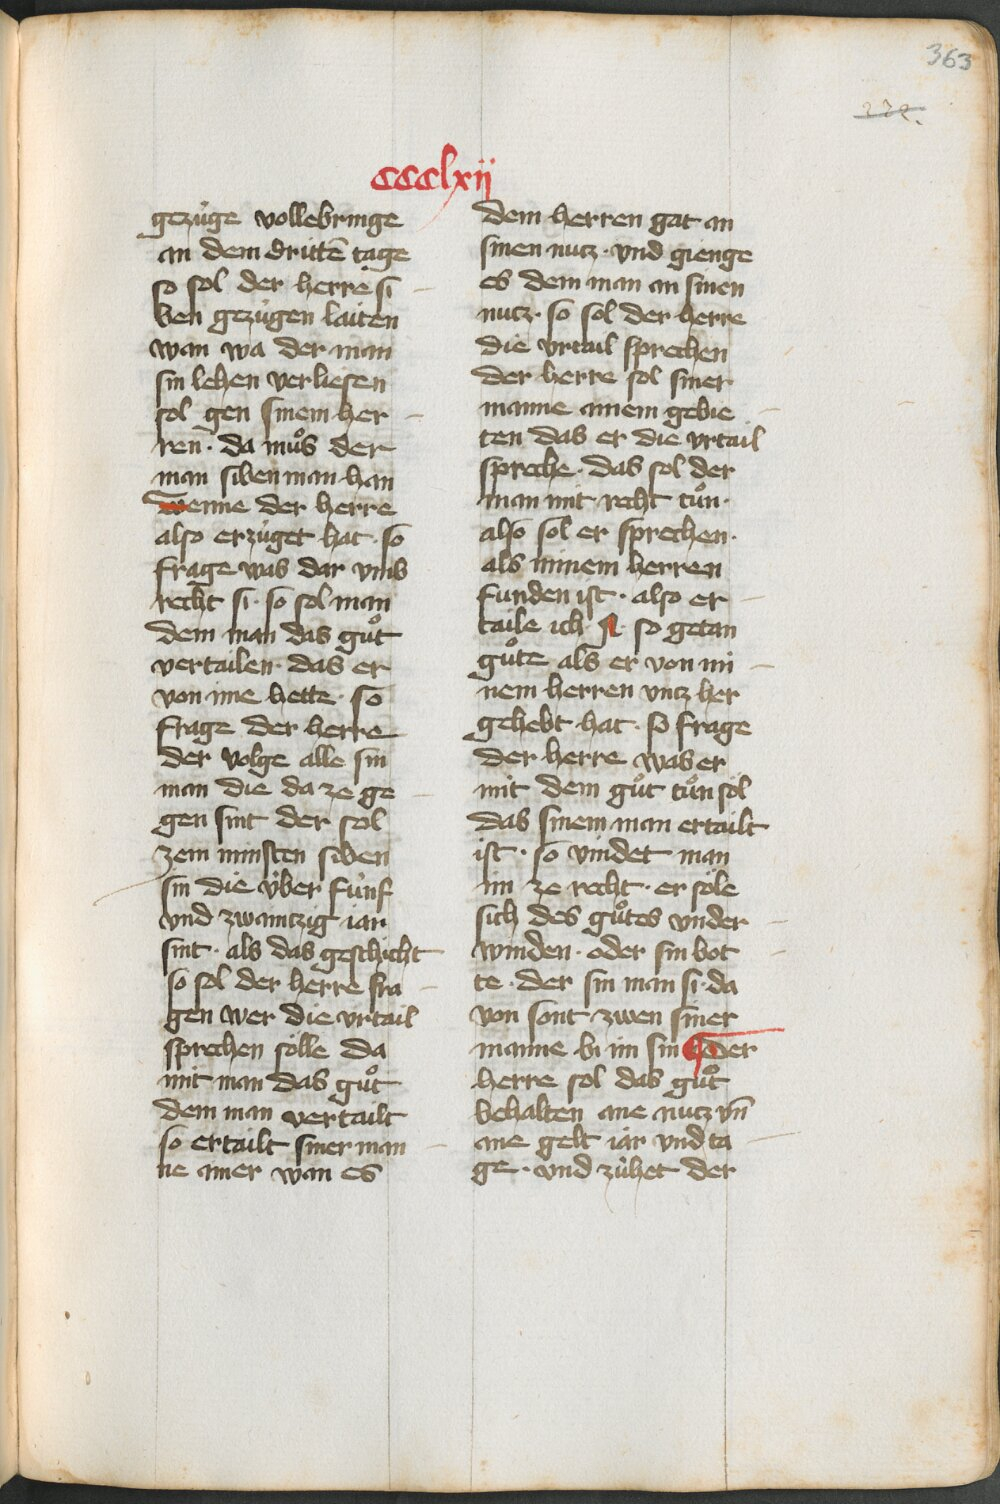 363
222.
cccclxij
gezuͤge vollebringe
an dem dritten̄ tage
so sol der herre si
ben gezuͤgen laiten
wan wa der man
sin lehen verliesen
sol gen sinem her
ren · da muͦs der
man siben man han
Wenne der herre
also erzuͤget hat · so
frage was dar vmb
recht si · so sol man
dem man das guͦt
vertailen · das er
von ime hette · so
frage der herre
der volge alle sin
man die da ze ge
gen sint der sol
zem minsten siben
sin die vͤber fuͤnf
vnd zwaintzig iar
sint · als das geschicht
so sol der herre fra
gen wer die vrtail
sprechen soͤlle da
mit man das guͦt
dem man vertailt
so ertailt siner man
ne ainer wan es
dem herren gat an
sinen nutz · vnd gienge
es dem man an sinen
nutz · so sol der herre
die vrtail sprechen
der herre sol siner
manne ainem gebie
ten das er die vrtail
spreche · das sol der
man mit recht tuͦn ·
also sol er sprechen ·
als minem herren
funden ist · also er
taile ich A · so getan
guͦte als er von mi
nem herren vntz her
gehebt hat · so frage
der herre was er
mit dem guͦt tuͦn sol
das sinem man ertailt
ist · so vindet man
im ze recht · er soͤle
sich des guͦtes vnder
winden · oder sin bot
te · der sin man si · da
von sont zwen siner
manne bi im sin ¶ Der
herre sol das guͦt
behalten ane nutz vn̄
ane gelt iar vnd ta
ge · vnd zuͤhet der